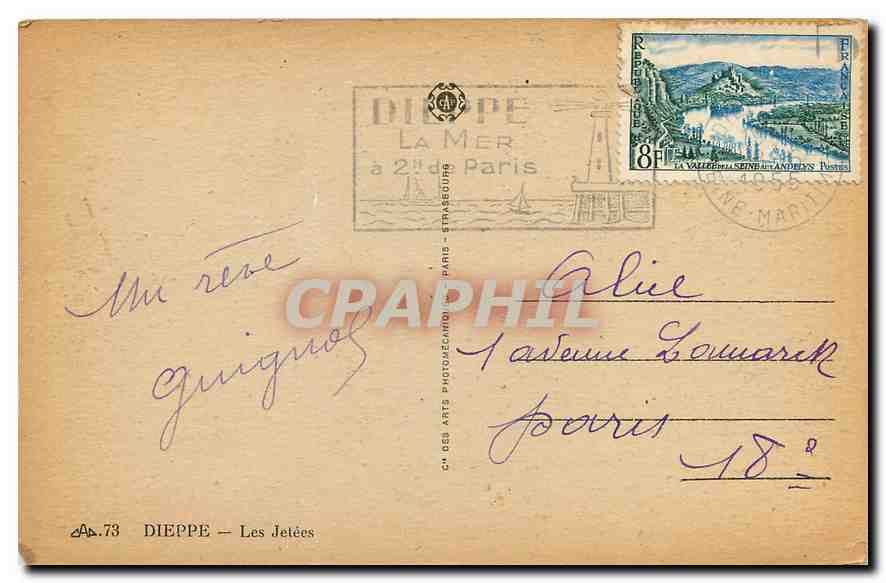 DIEPPE
LA MER
à 2H de Paris
REPUBLIQUE
FRANÇAISE
8F
LA VALLÉE DE LA SEINE AUX ANDELYS Postes
1955
NE-MARIT
CAP
Un rêve
Guignol
CPAPHIL
Alice
1 avenue Lamarck
Paris
18e
Cie DES ARTS PHOTOMÉCANIQUES PARIS - STRASBOURG
CAP.73 DIEPPE — Les Jetées